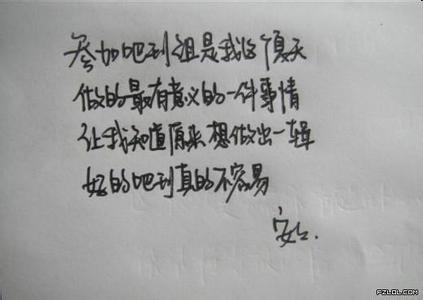 参加吧刊组是我这个夏天
做的最有意义的一件事情
让我知道原来想做出一辑
好的吧刊真的不容易
安
PZLOL.COM